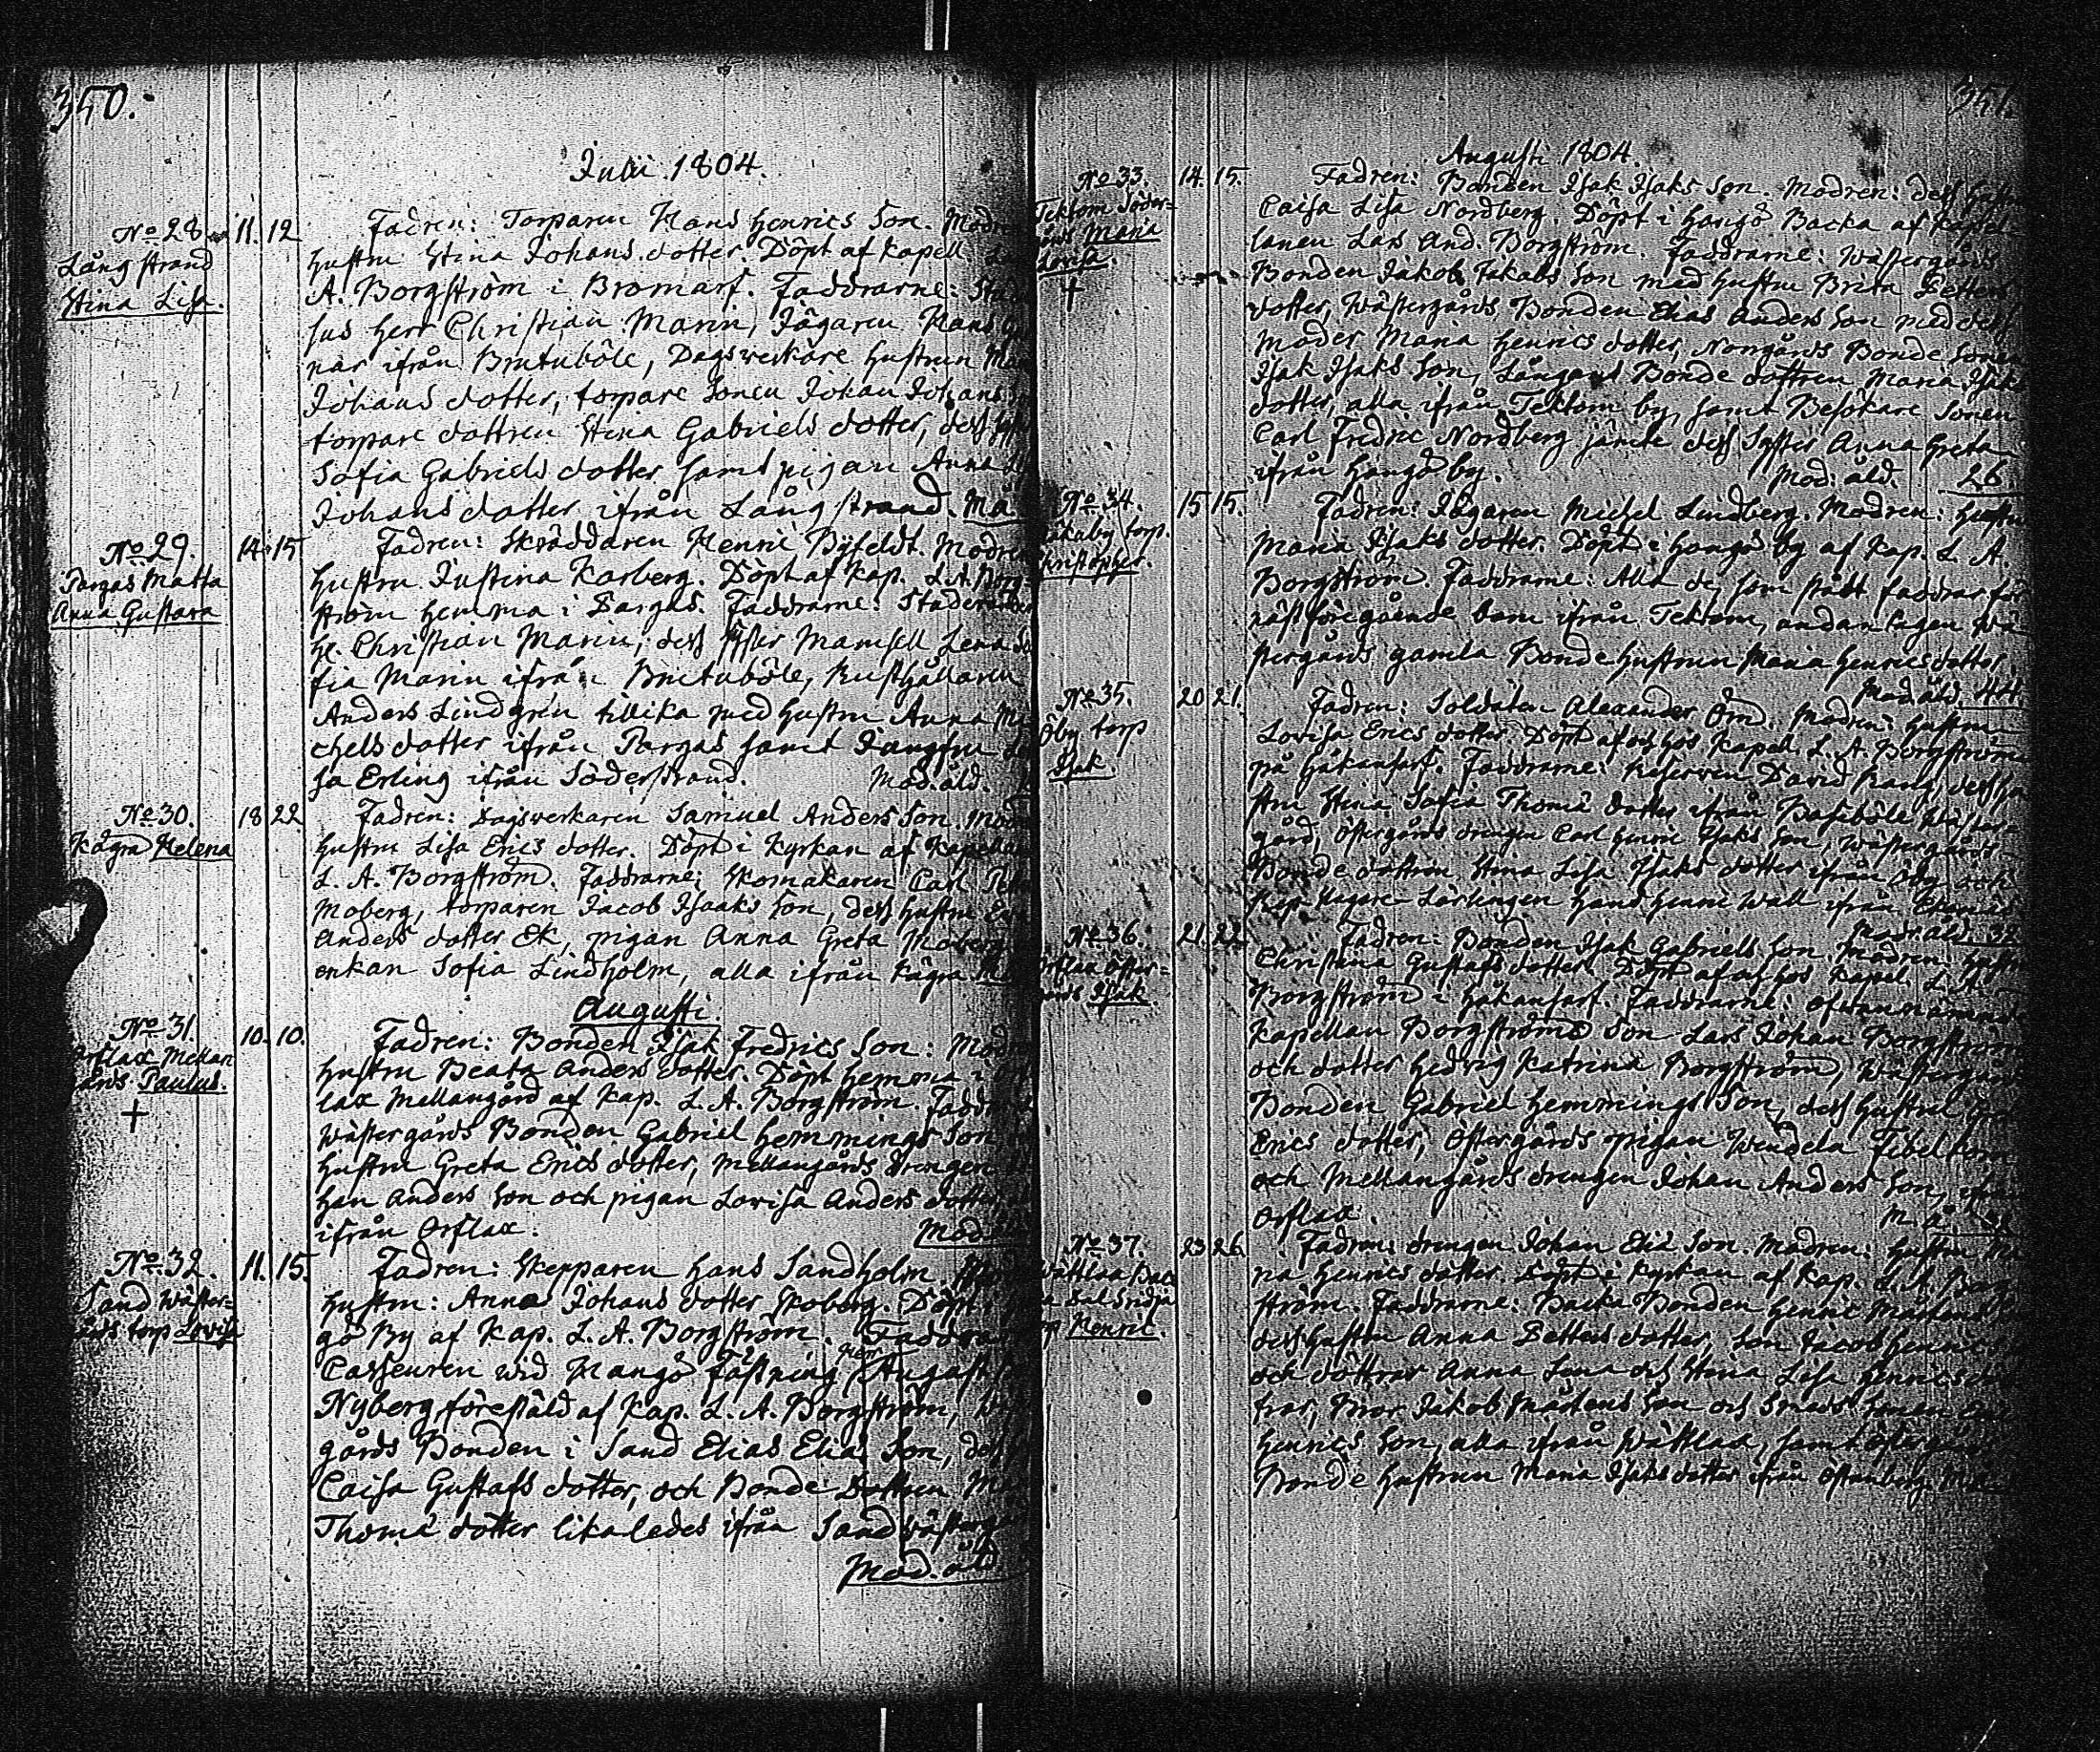 350.
Julii 1804.
No 28
Långstrand
Stina Lisa.
11. 12.
Fadren: Torparen Hans Henrics Son. Modr
hustru Stina Johans dotter. Döpt af Kapell
A. Borgström i Bromarf. Faddrarne:
sus Herr Christian Marin, Jägaren Hans
när ifrån Brutuböle, Dagsverkare hustrun
Johans dotter, torpare Sonen Johan Johans
torpare dottren Stina Gabriels dotter, dess
Sofia Gabriels dotter samt pigan Anna
Johans dotter ifrån Långstrand. Mo
No 29.
Pargas Matta
Anna Gustava
14. 15
Fadren: Skräddaren Henric Byfeldt. Modren
hustru Justina Karberg. Döpt af Kap. L. A. Borg-
ström hemma i Pargas. Faddrarne:
H. Christian Marin, dess syster Mamsell Lena So
fia Marin ifrån Brutuböle, Rusthållaren
Anders Lindgren tillika med hustru Anna Mi
chels dotter ifrån Pargas samt Jungfru
sa Erling ifrån Söderstrand. Mod. åld.
No 30.
Kågra Helena
18 22
Fadren: Dagsverkaren Samuel Anders Son. Mod
hustru Lisa Erics dotter. Döpt i Kyrkan af Kapellan
L. A. Borgström. Faddrarne: Skomakaren Carl
Moberg, torparen Jacob Isaaks Son, dess hustru
Anders dotter Ek, pigan Anna Greta Moberg
enkan Sofia Lindholm, alla ifrån Kågra
Augusti.
No 31.
Orslax Mellan
gårds Paulus.
+
10. 10.
Fadren: Bonden Isak Fredrics Son: Modr
hustru Beata Anders dotter. Döpt hemma i Ors
lax Mellangård af Kap. L. A. Borgström. Faddr
Wästergårds Bonden Gabriel Hemmings Son,
hustru Greta Erics dotter, Mellangårds drengen
han Anders Son och pigan Lovisa Anders dotter
ifrån Orslax. Mod.
No 32.
Sand Wäster=
gårds torp Lovisa
11. 15.
Fadren: Skepparen Hans Sandholm.
hustru: Anna Johans dotter Skoberg. Döpt
gö By af Kap. L. A. Borgström. Faddra
Casseuren wid Hangö Fästning Herr August
Nyberg, förestäld af Kap. L. A. Borgström,
gårds Bonden i Sand Elias Elias Son, dess
Caisa Gustafs dotter, och Bonde Dottren
Thomæ dotter likaledes ifrån Sand Wästerg
Mod. åld
351.
Augusti 1804.
No 33
Tektom Söder=
gårds Maria
Lovisa.
+
14. 15.
Fadren: Bonden Isak Isaks Son. Modren: dess hustru
Caisa Lisa Nordberg. Döpt i Hangö Backa af Kapel-
lanen Lars And. Borgström. Faddrarne: Wästergårds
Bonden Jakob Jakobs Son med hustru Brita Petters
dotter, Wästergårds Bonden Elias Anders Son med dess
moder Maria Henrics dotter, Norrgårds Bonde Sonen
Isak Isaks Son, Långans Bonde dottren Maria Isaks
dotter, alla ifrån Tektom by, samt Besökare Sonen
Carl Fredric Nordberg jämte dess Syster Anna Greta
ifrån Hangö by. Mod. åld. 26.
No 34.
Täktby torp.
Christopher.
15 15.
Fadren: Jägaren Michel Lindberg. Modren: hustru
Maria Isaks dotter. Döpt i Hangö by af Kap. L. A.
Borgström. Faddrarne: Alla de, som stått faddrar för
näst föregående barn ifrån Tektom, undantagen Wä
stergårds gamla Bonde hustrun Maria Henrics dotter.
Mod. åld. 44.
No 35.
Öby torp
Isak
20 21.
Fadren: Soldaten Alexander Ord. Modren: hustru
Lovisa Erics dotter Döpt af och hos Kapel. L. A. Borgström
på Håkansarf. Faddrarne: David Rang, dess hu
stru Stina Sofia Thomæ dotter ifrån Basaböle Wäster-
gård, Östergårds drengen Carl Henric Isaks Son, Wästergårds
Bonde dottren Stina Lisa Isaks dotter ifrån Öby och
Lärlingen Hans Henric Wall ifrån Ekenäs
Mod. åld. 32
No 36.
Orslax Öster=
gårds Isak.
21. 22.
Fadren: Bonden Isak Gabriels Son. Modren hustru
Christina Gustafs dotter. Döpt af och hos Kapel. L. A.
Borgström i Håkansarf. Faddrarne: ofwannämnde
Kapellan Borgströms Son Lars Johan Borgström
och dotter Hedvig Katrina Borgström, Wästergårds
Bonden Gabriel Hemmings Son, dess hustru Greta
Erics dotter, Östergårds pigan Wendela Fibelkorn
och Mellangårds drengen Johan Anders Son, ifrån
Orslax. M. å. 32
No 37.
Wättlax Back
Henric.
23 26.
Fadren: drengen Johan Eliæ Son. Modren: hustru
na Henrics dotter. Döpt i Kyrkan af Kap. L. A. Borg
ström. Faddrarne: Backa Bonden Henric Mårtens
dess hustru Anna Petters dotter, Son Jacob Henrics
och döttrar Anna Lena och Stina Lisa Henrics döt
trar, Bror Jakob Mårtens Son och Smeds Sonen
Henrics Son, alla ifrån Wättlax, samt Östergårds
Bonde hustrun Maria Isaks dotter ifrån Östanberg.